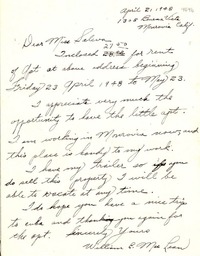 April 21 1948
Buena Vista
Monrovia Calif.
Dear Miss
Enclosed for rent
of Apt at above address beginning
Friday 23 April 1948 to May 23.
I apreciate very much the
oppertunity to have the little apt.
I am working in Monrovia now and
this place is handy to my work.
I have my trailer so if you
do sell this property I will be
able to vacate at any time.
I do hope you have a nice trip
to cuba and thank you again for
the apt. Sincerely Yours
William E. Mc Lean